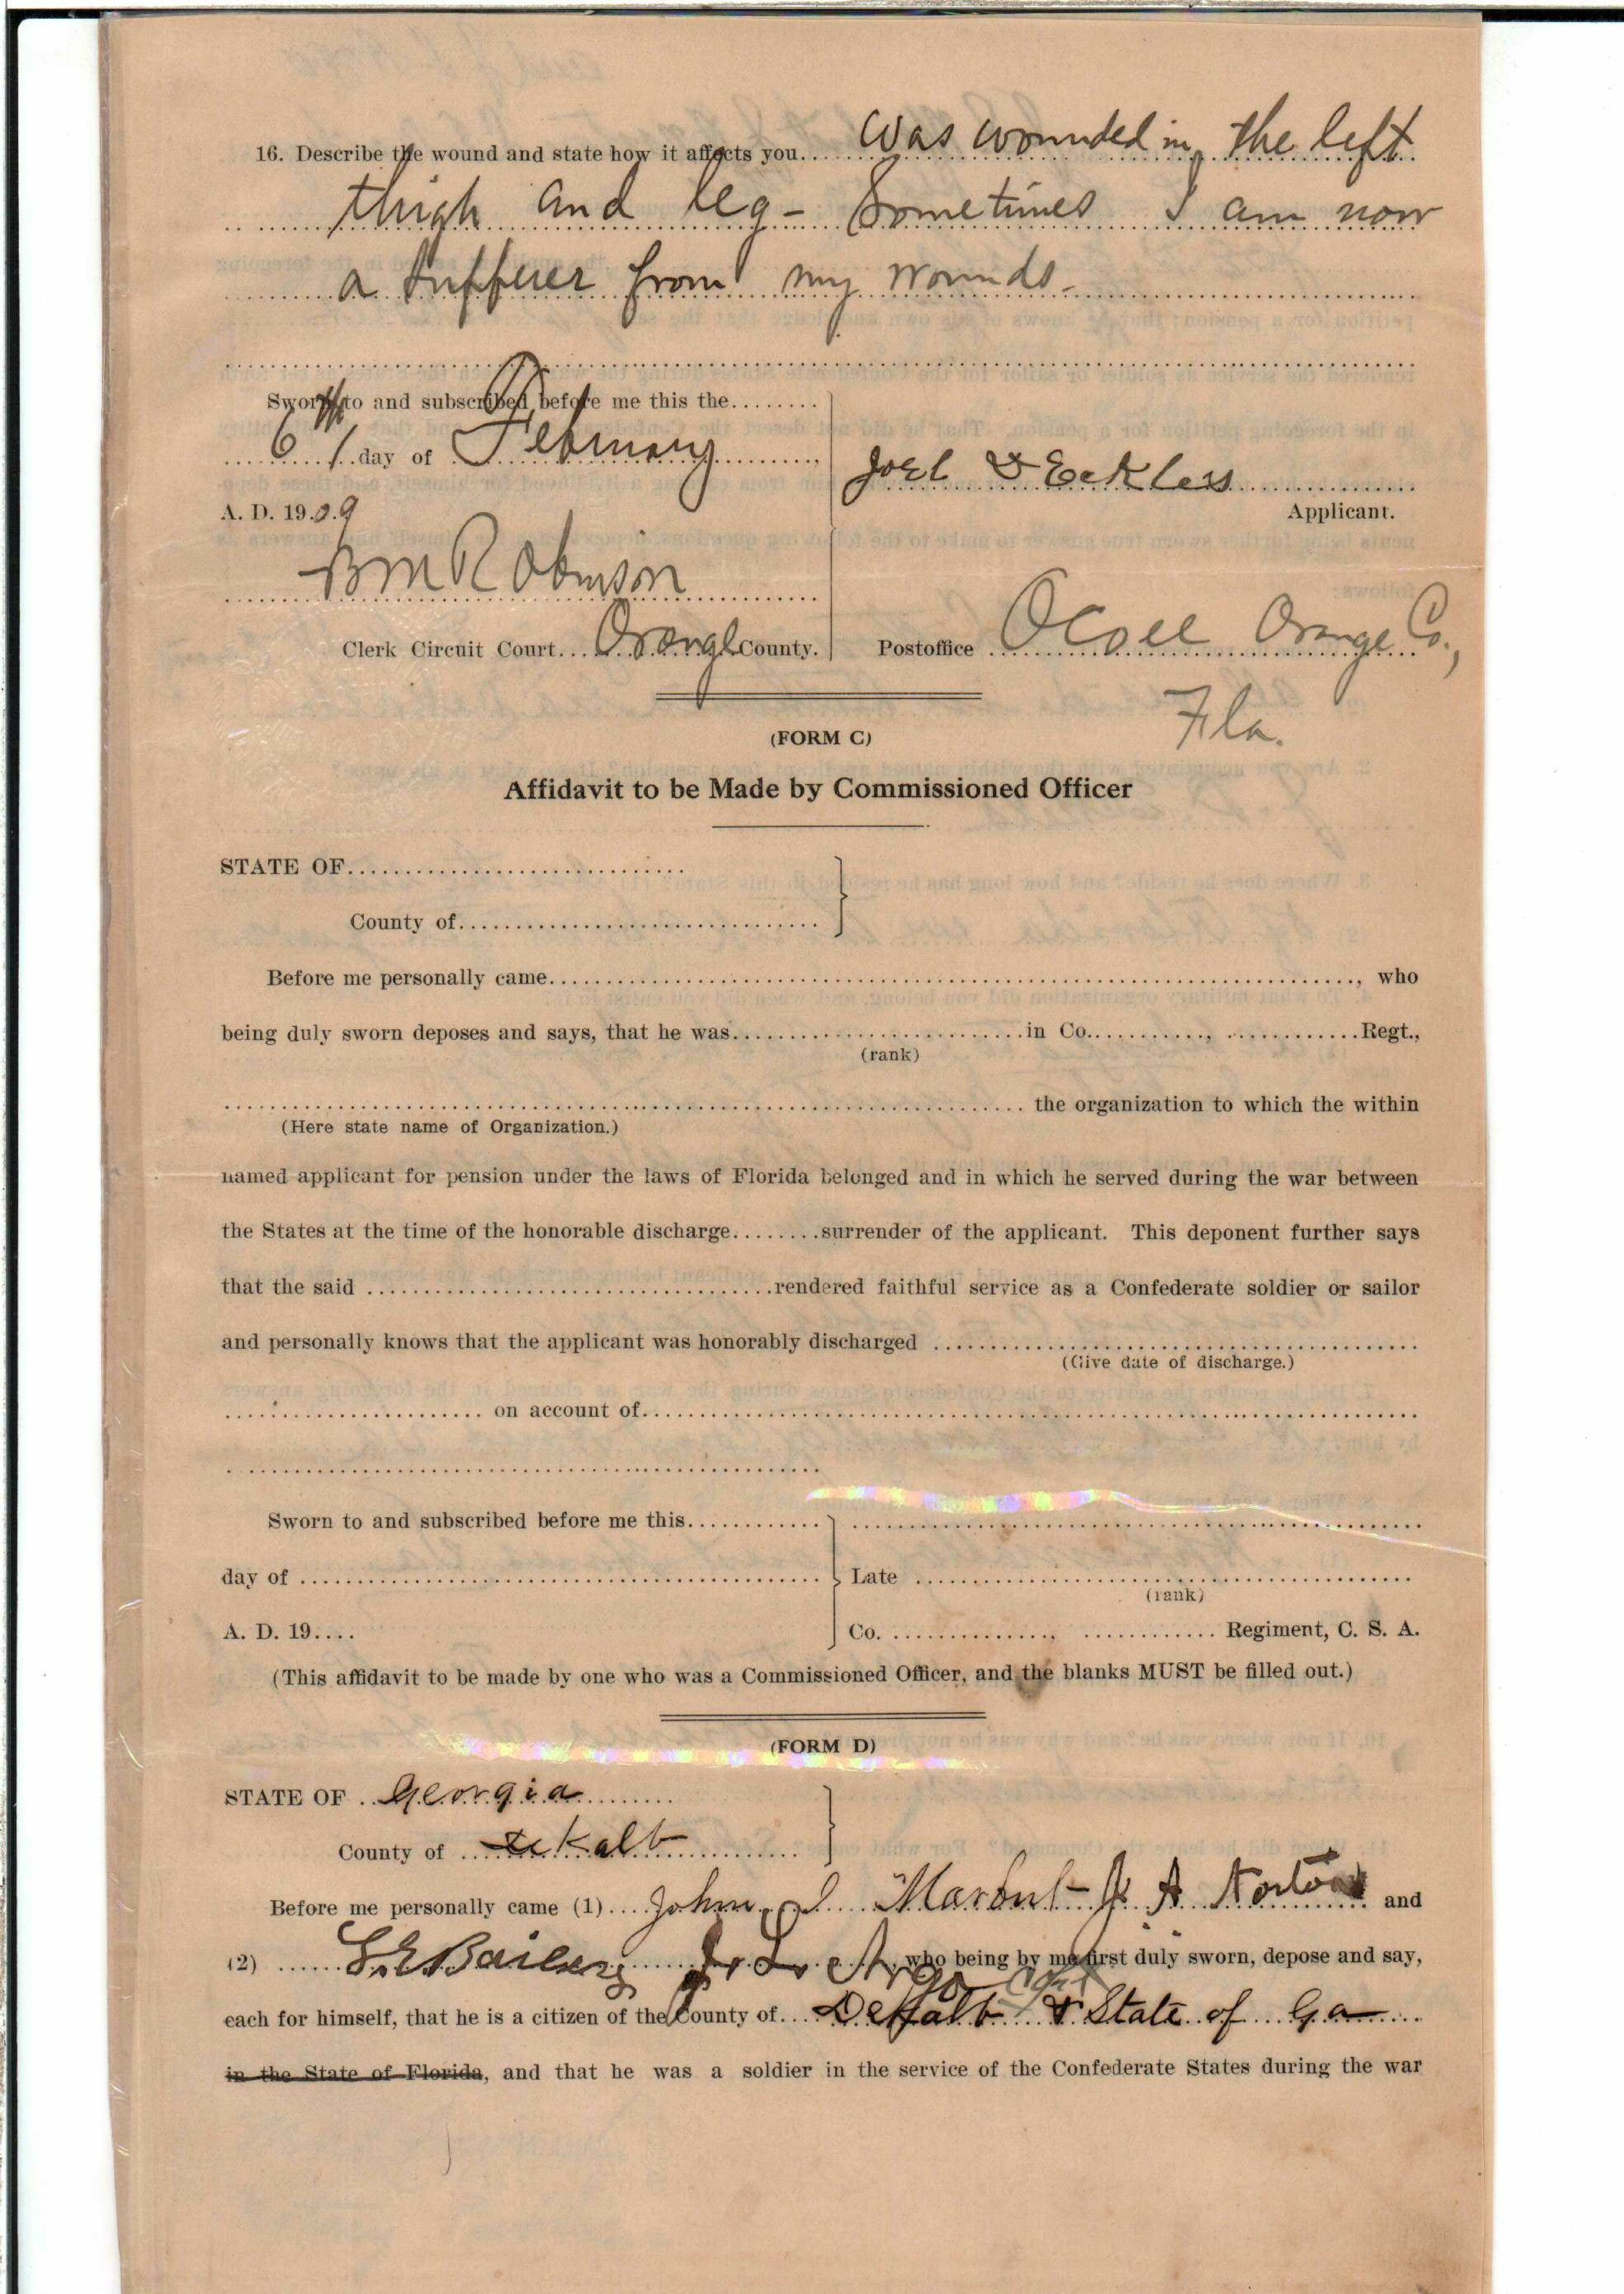 16. Describe the wound and state how it affects you... Was wounded in the left
thigh and leg - Sometimes I am now
a sufferer from my wounds -
Sworn to and subscribed before me this the........
6th day of February,
A. D. 1909
Joel D Eckles
Applicant.
B M Robinson
Clerk Circuit Court... Orange County.
Postoffice Ocoee Orange Co.,
Fla.
(FORM C)
Affidavit to be Made by Commissioned Officer
STATE OF..............................
County of................................
Before me personally came........................................................................, who
being duly sworn deposes and says, that he was..........................in Co..........., ............Regt.,
(rank)
...................................................................... the organization to which the within
(Here state name of Organization.)
named applicant for pension under the laws of Florida belonged and in which he served during the war between
the States at the time of the honorable discharge........surrender of the applicant. This deponent further says
that the said ....................................rendered faithful service as a Confederate soldier or sailor
and personally knows that the applicant was honorably discharged ..........................................
(Give date of discharge.)
....................... on account of....................................................................
....................................................
Sworn to and subscribed before me this............
day of ..............................................
Late ...........................................
(rank)
A. D. 19....
Co. .............., ............ Regiment, C. S. A.
(This affidavit to be made by one who was a Commissioned Officer, and the blanks MUST be filled out.)
(FORM D)
STATE OF Georgia
County of DeKalb
Before me personally came (1) John J. Marbut J A Norton and
(2) S. E. Bailey J. L. Argo who being by me first duly sworn, depose and say,
each for himself, that he is a citizen of the County of.... DeKalb & State of Ga
in the State of Florida, and that he was a soldier in the service of the Confederate States during the war